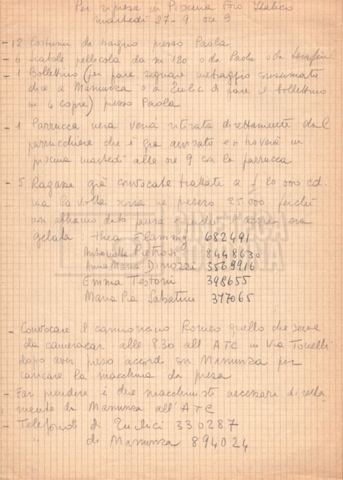 Per ripresa in Piscina Foro Italico
martedì 27-9 ore 9
- 12 Costumi da bagno presso Paola
- 6 scatole pellicola da m 120 o da Paola o da Serafini
- 1 Bollettino (per fare segnare metraggio
dire a Mamusa o a Zulici di fare il bollettino
in 4 copie) presso Paola
- 1 Parrucca nera verrà ritirata direttamente dal
parrucchiere che è già avvisato e si troverà in
piscina martedì alle ore 9 con la parrucca
- 5 Ragazze già convocate trattate a £ 20 000 cd.
una volta essa ne pesero 25.000 perché
gelata: Thea Flamming 682491
Antonietta Pietrosi 8448630
Anna Maria Dinozzi 3569916
Emma Testoni 398655
Maria Pia Sabatini 377065
- Convocare il camioncino Romeo quello che serve
da cameracar alle 8.30 all'ATC in Via Tonelli
dopo aver preso accordi con Mamusa per
caricare la macchina da presa
- Far prendere i due macchinisti necessari diretta
mente da Mamusa all'ATC
- Telefono di Zulici 330287
" di Mamusa 894024